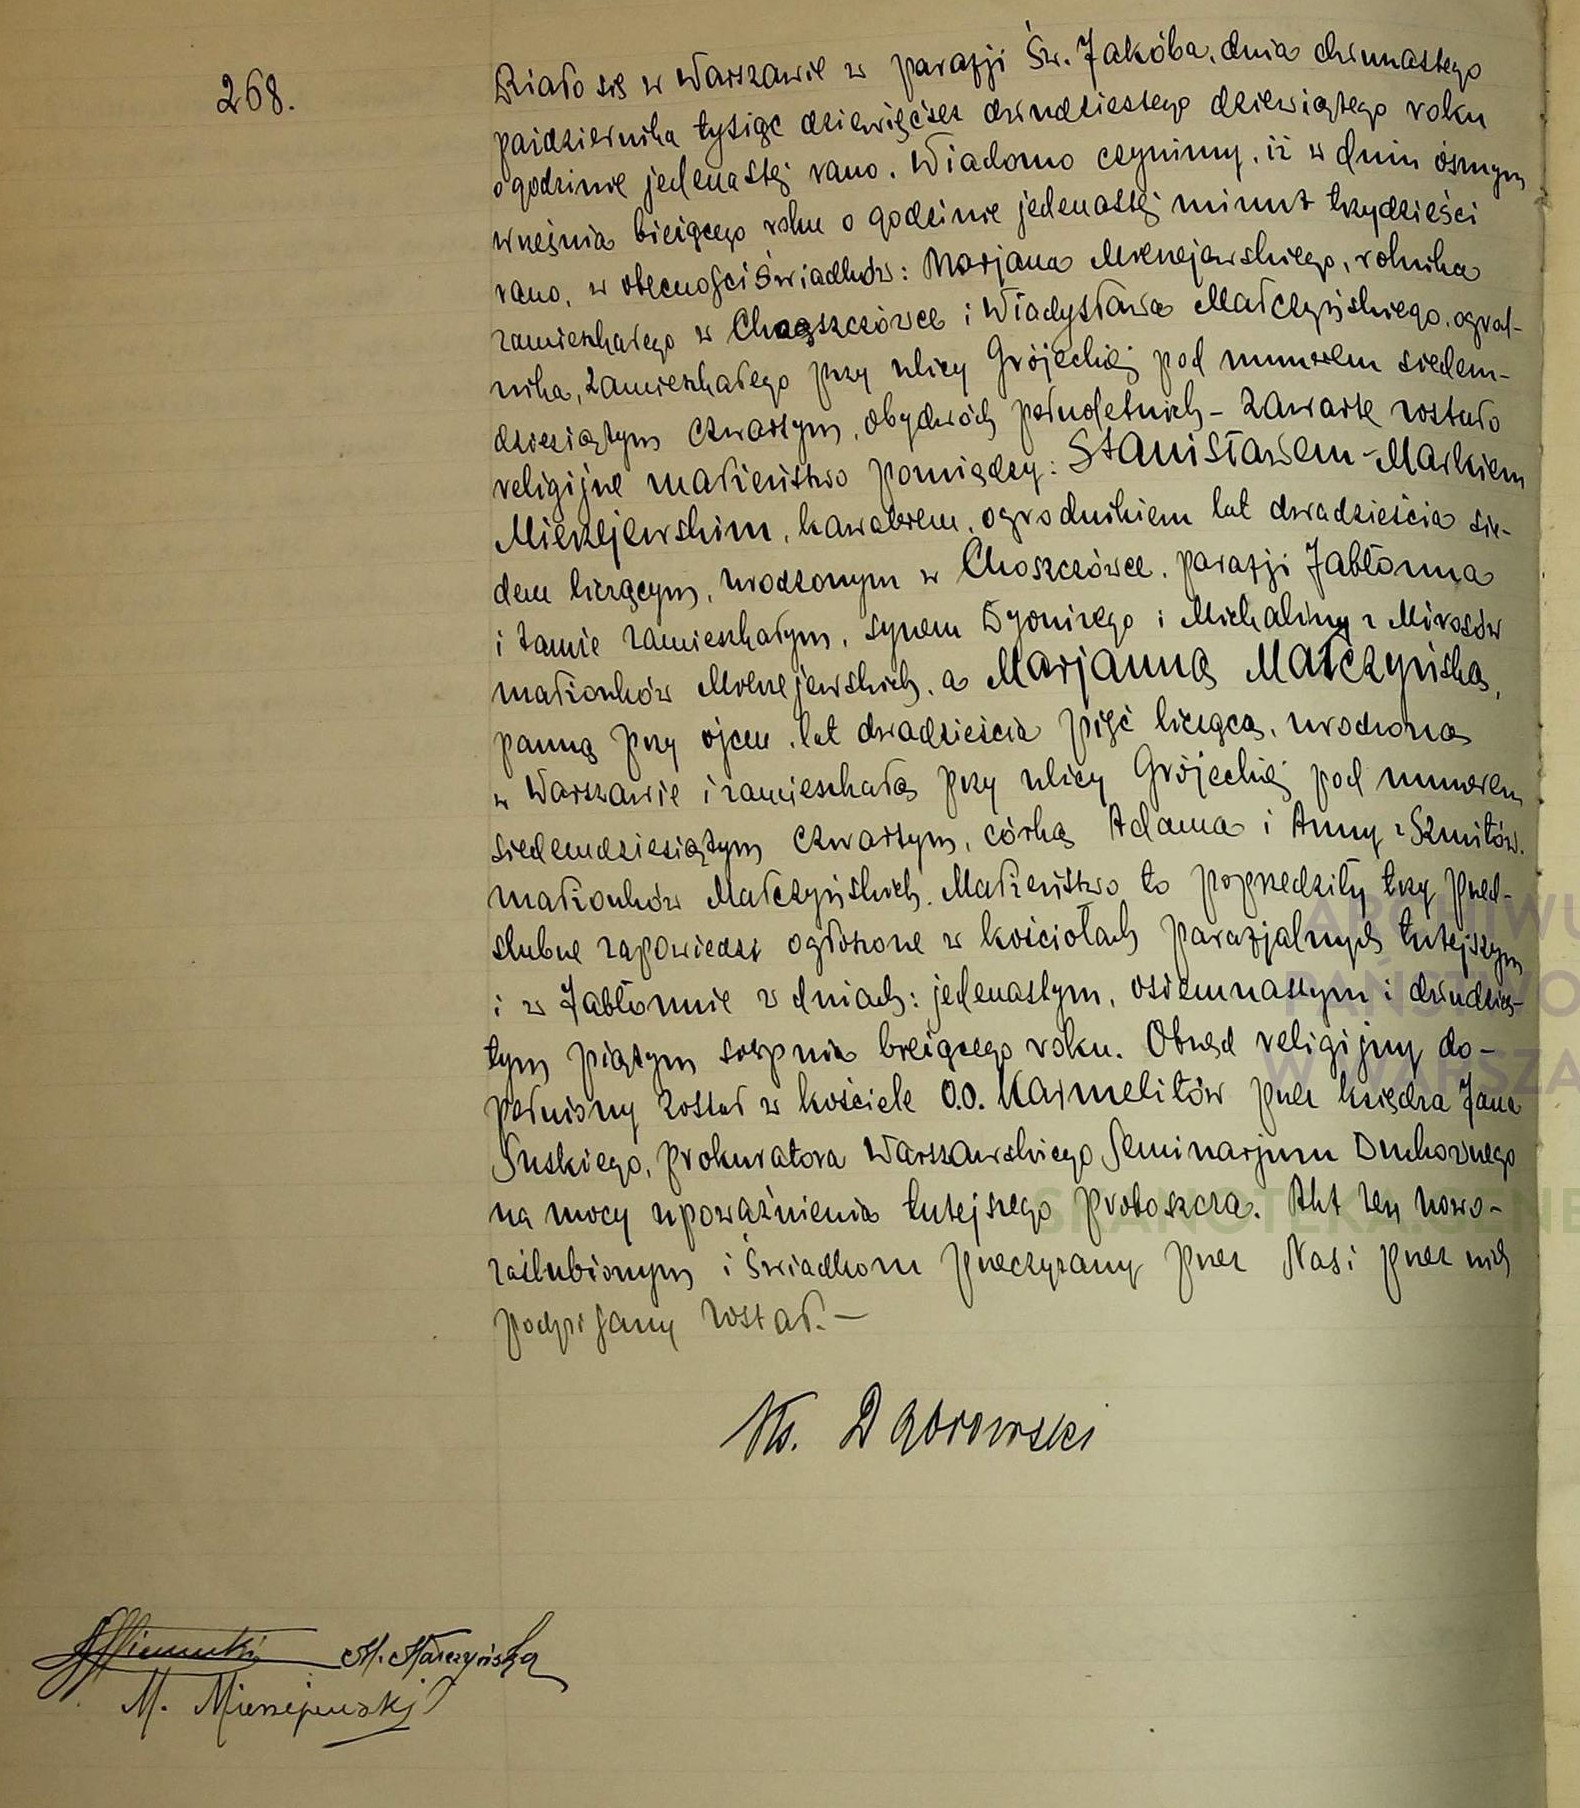 268.
Działo się w Warszawie w parafji Św. Jakóba, dnia dwunastego
października tysiąc dziewięćset dwudziestego dziewiątego roku
o godzinie jedenastej rano. Wiadomo czynimy, iż w dniu ósmym
września bieżącego roku o godzinie jedenastej minut trzydzieści
rano, w obecności świadków: Marjana Mierzejewskiego, rolnika
zamieszkałego w Choszczówce i Władysława Małczyńskiego, ogrod-
nika, zamieszkałego przy ulicy Grójeckiej pod numerem siedem-
dziesiątym czwartym, obydwóch pełnoletnich – zawarte zostało
religijne małżeństwo pomiędzy: Stanisławem-Markiem
Mierzejewskim, kawalerem, ogrodnikiem lat dwadzieścia sie-
dem liczącym, urodzonym w Choszczówce, parafji Jabłonna
i tamże zamieszkałym, synem Dyonizego i Michaliny z Mirosów
małżonków Mierzejewskich, a Marjanną Małczyńską,
panną przy ojcu, lat dwadzieścia pięć liczącą, urodzoną
w Warszawie i zamieszkałą przy ulicy Grójeckiej pod numerem
siedemdziesiątym czwartym, córką Adama i Anny z Szmitów,
małżonków Małczyńskich. Małżeństwo to poprzedziły trzy przed-
ślubne zapowiedzi ogłoszone w kościołach parafjalnych tutejszym
i w Jabłonnie w dniach: jedenastym, osiemnastym i dwudzies-
tym piątym sierpnia bieżącego roku. Obrzęd religijny do-
pełniony został w kościele O.O. Karmelitów przez księdza Jana
Suskiego, prokuratora Warszawskiego Seminarjum Duchownego
na mocy upoważnienia tutejszego proboszcza. Akt ten nowo-
zaślubionym i świadkom przeczytany przez Nas i przez nich
podpisany został. —
Ks. Dąbrowski
M. Małczyńska
M. Mierzejewski
ARCHIWU
PAŃSTWO
W WARSZA
SKANOTEKA GENE